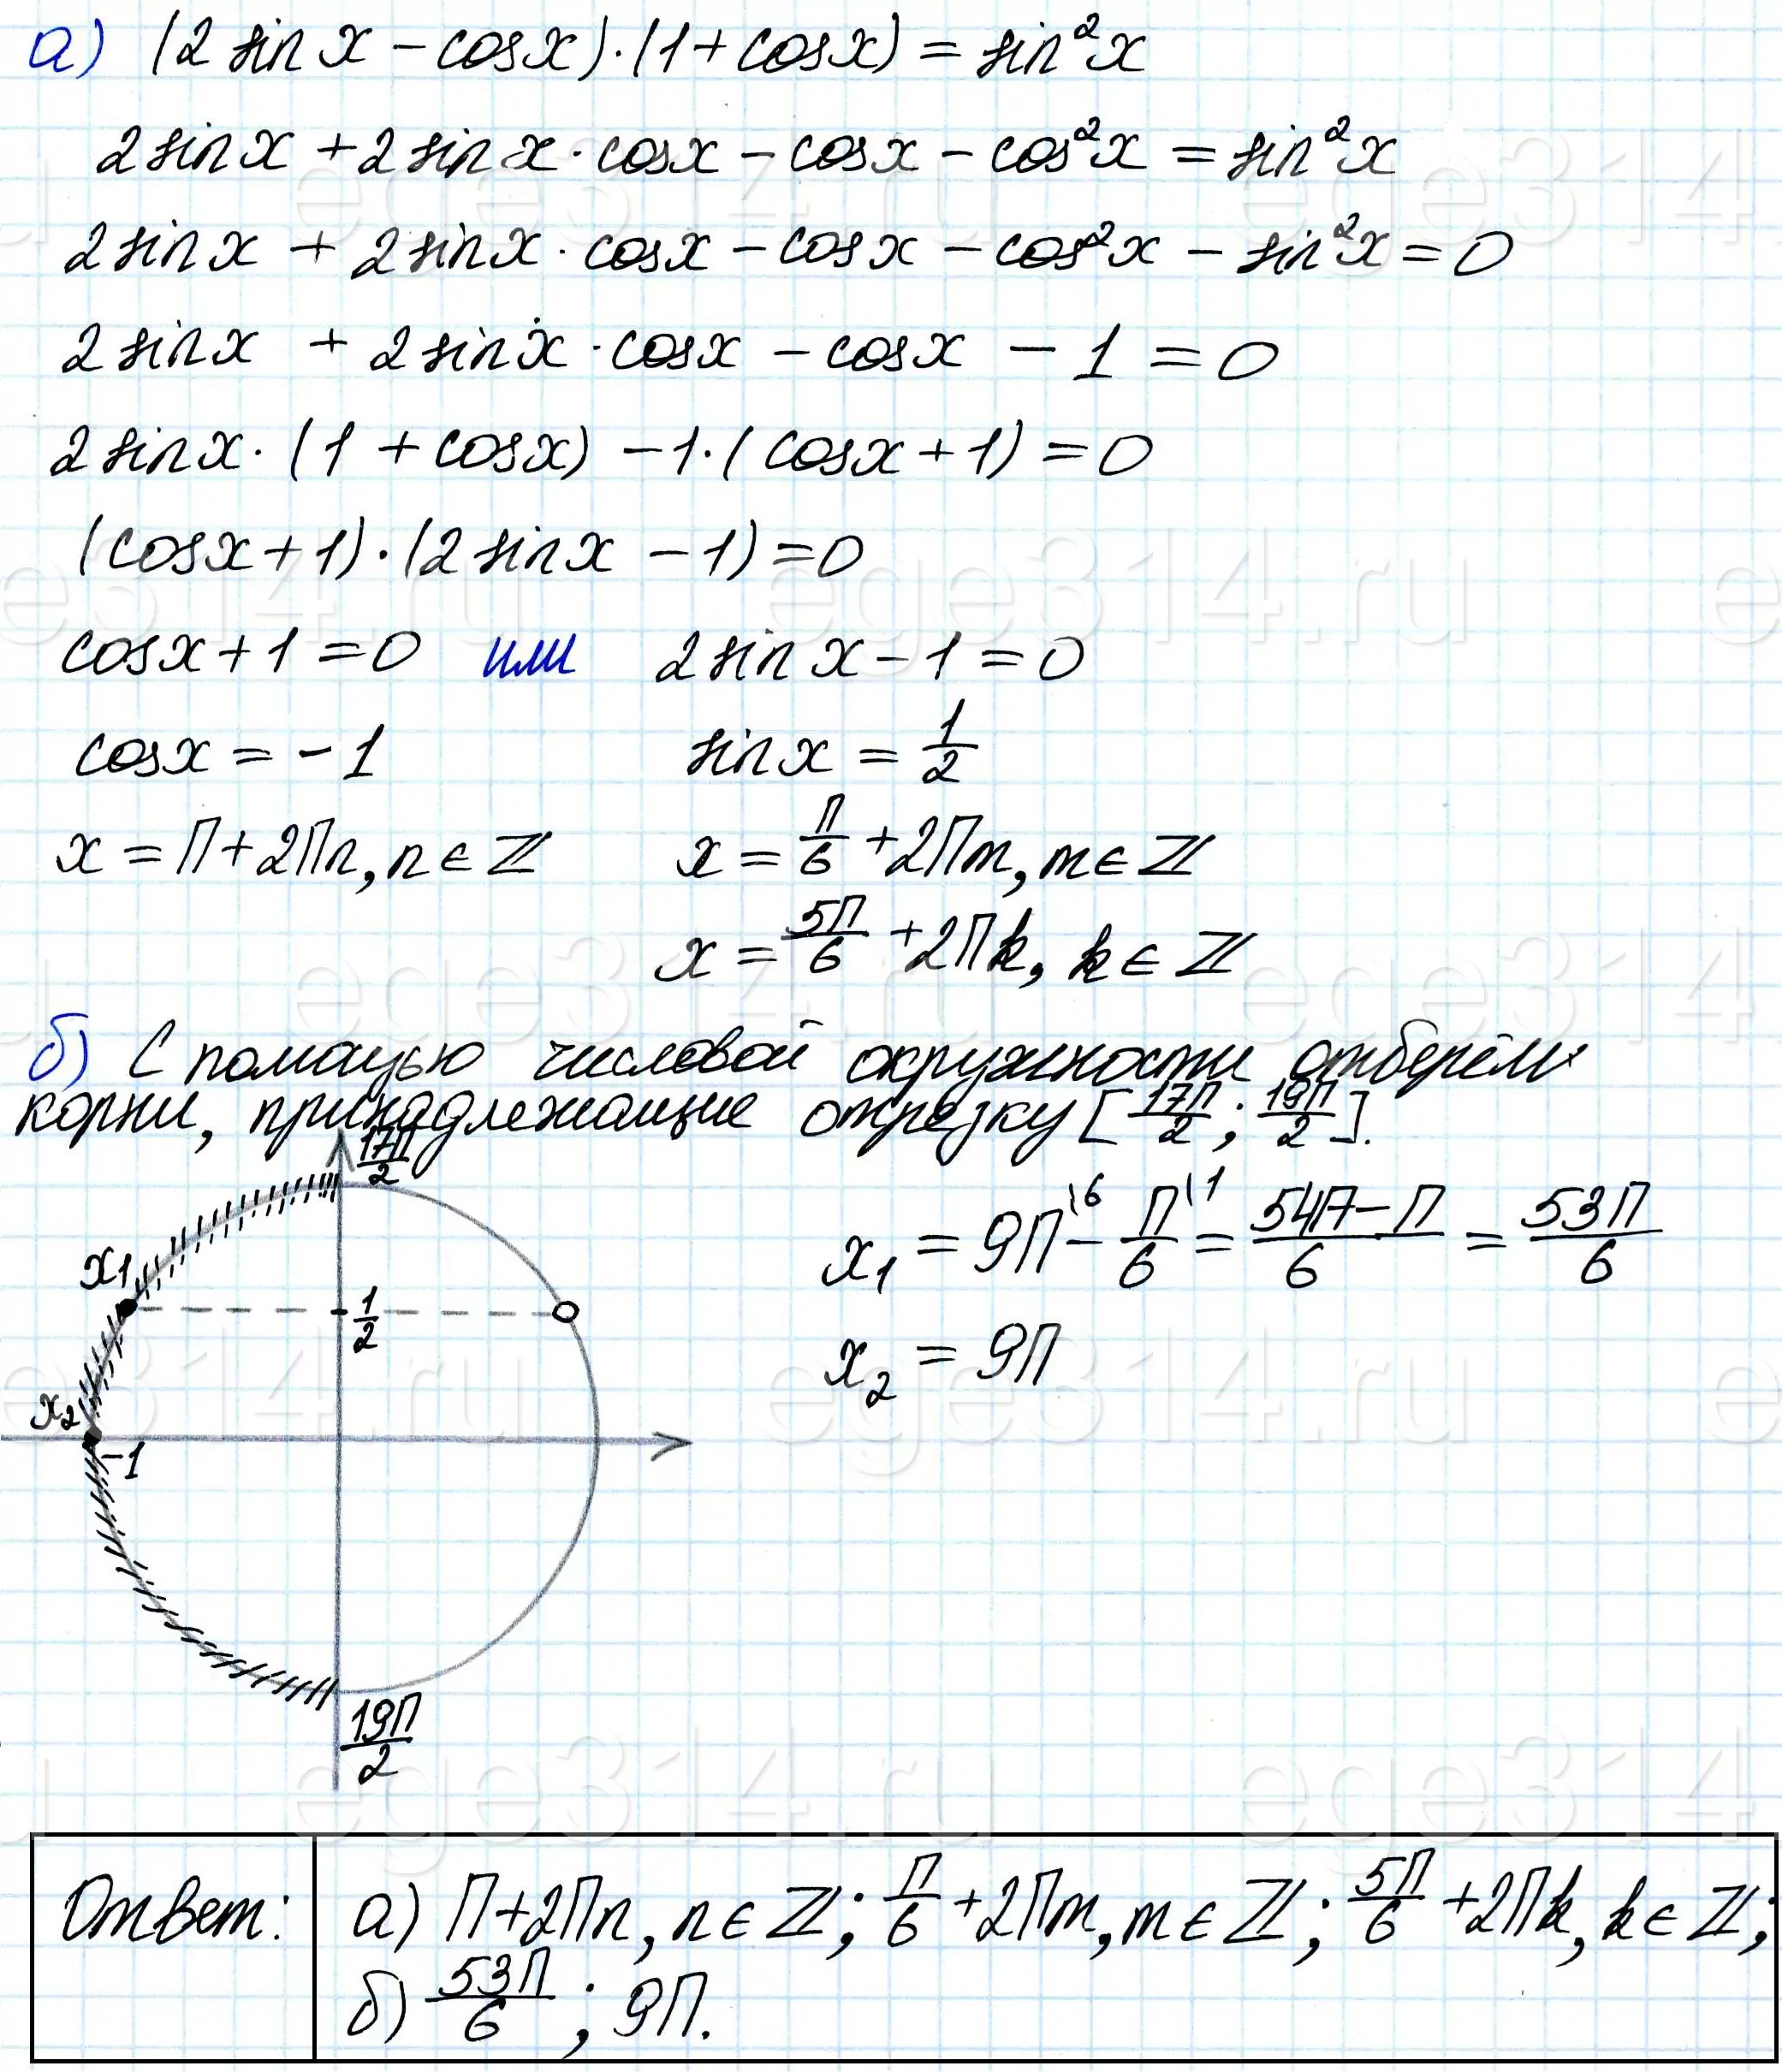 а) (2 sin x − cos x)·(1 + cos x) = sin²x
2 sin x + 2 sin x · cos x − cos x − cos²x = sin²x
2 sin x + 2 sin x · cos x − cos x − cos²x − sin²x = 0
2 sin x + 2 sin x · cos x − cos x − 1 = 0
2 sin x · (1 + cos x) − 1·(cos x + 1) = 0
(cos x + 1)·(2 sin x − 1) = 0
cos x + 1 = 0 или 2 sin x − 1 = 0
cos x = −1 sin x = 1/2
x = П + 2Пn, n ∈ ℤ x = П/6 + 2Пm, m ∈ ℤ
x = 5П/6 + 2Пk, k ∈ ℤ
б) С помощью числовой окружности отберём
корни, принадлежащие отрезку [17П/2; 19П/2].
17П/2
x₁ = 9П\6 − П/6\1 = (54П − П)/6 = 53П/6
x₁
1/2
x₂ = 9П
x₂
−1
19П/2
Ответ: а) П + 2Пn, n ∈ ℤ; П/6 + 2Пm, m ∈ ℤ; 5П/6 + 2Пk, k ∈ ℤ;
б) 53П/6; 9П.
ege314.ru